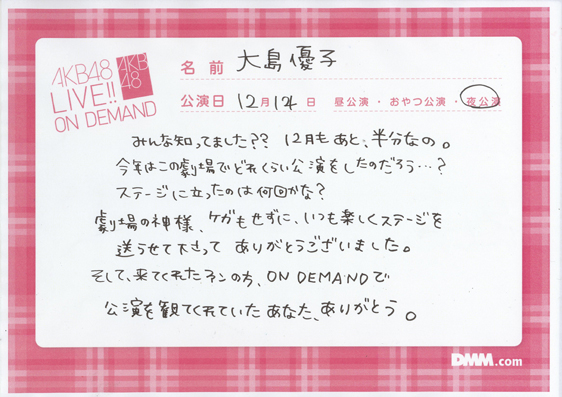 AKB48
LIVE!!
ON DEMAND
AKB
48
名前 大島優子
公演日 12月14日 昼公演・おやつ公演・夜公演
みんな知ってました?? 12月もあと、半分なの。
今年はこの劇場でどれくらい公演をしたのだろう…?
ステージに立ったのは何回かな?
劇場の神様、ケガもせずに、いつも楽しくステージを
送らせて下さって ありがとうございました。
そして、来てくれたファンの方、ON DEMANDで
公演を観てくれていたあなた、ありがとう。
DMM.com